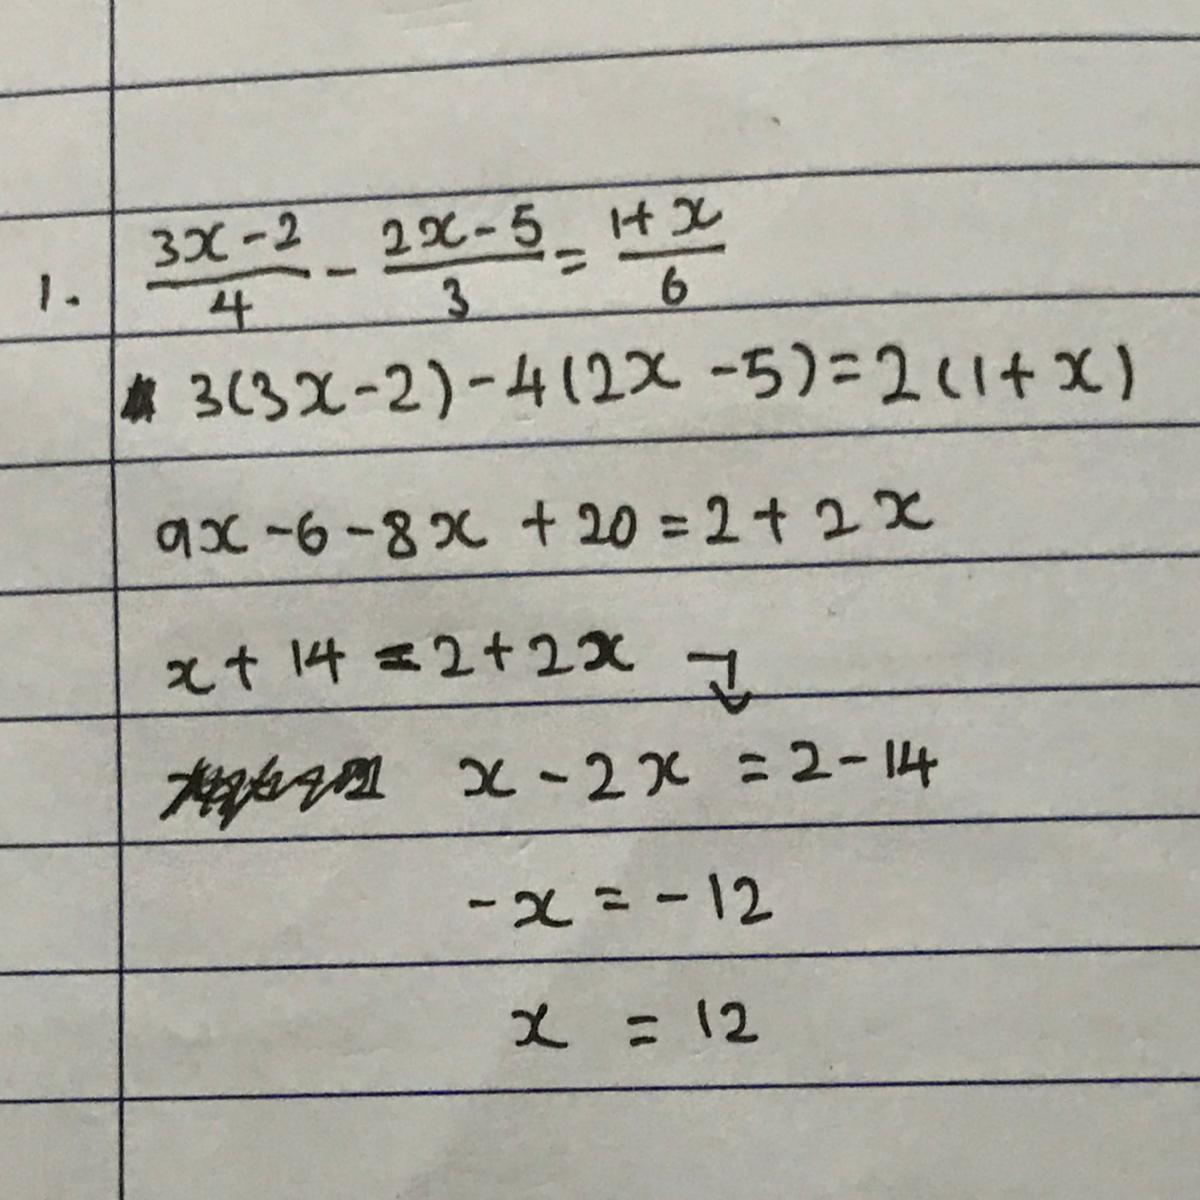 1. (3x-2)/4 - (2x-5)/3 = (1+x)/6
3(3x-2)-4(2x-5)=2(1+x)
9x-6-8x+20=2+2x
x+14=2+2x
x-2x=2-14
-x=-12
x=12